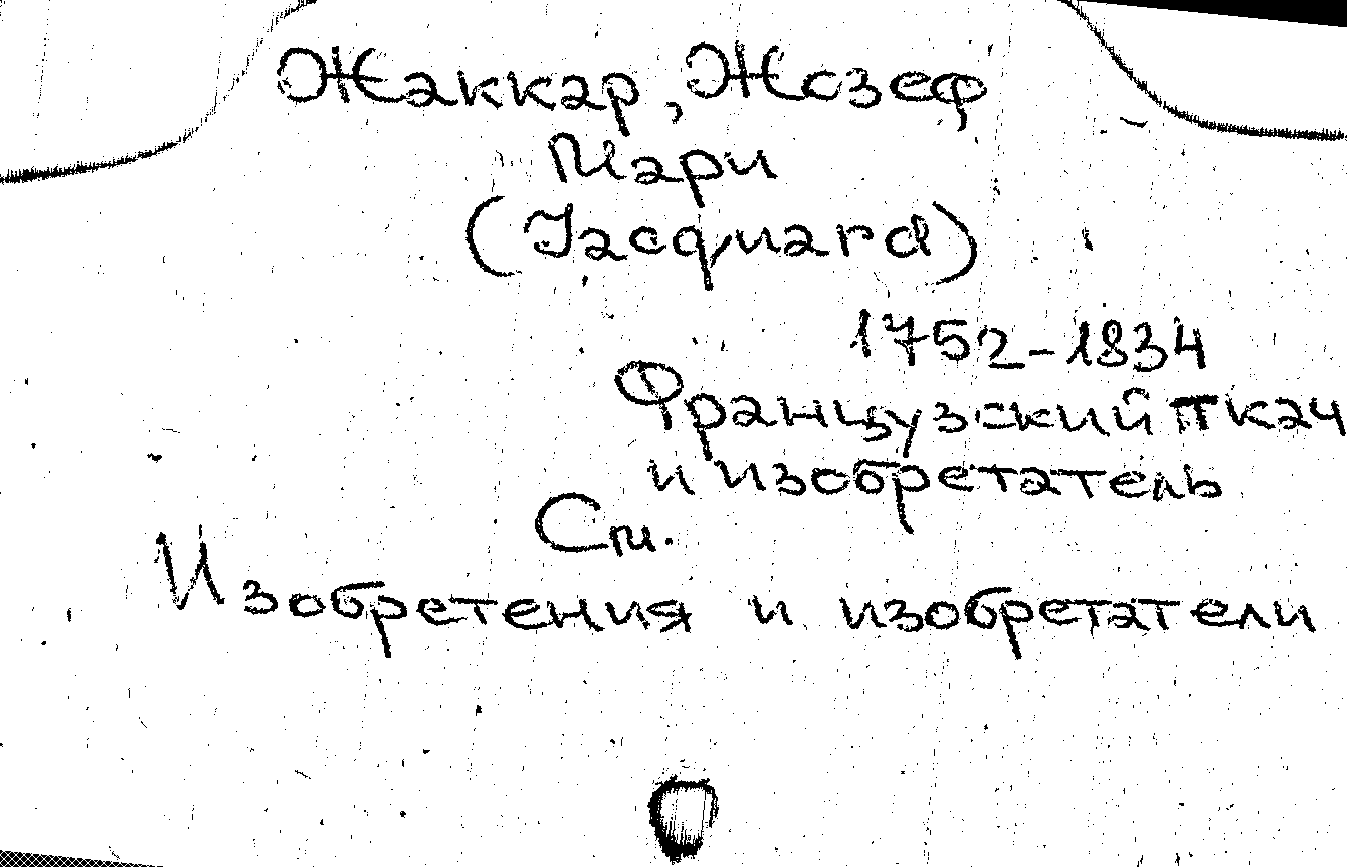 Жаккар, Жозеф
Мари
(Jacquard)
1752-1834
Французский ткач
и изобретатель
См.
Изобретения и изобретатели